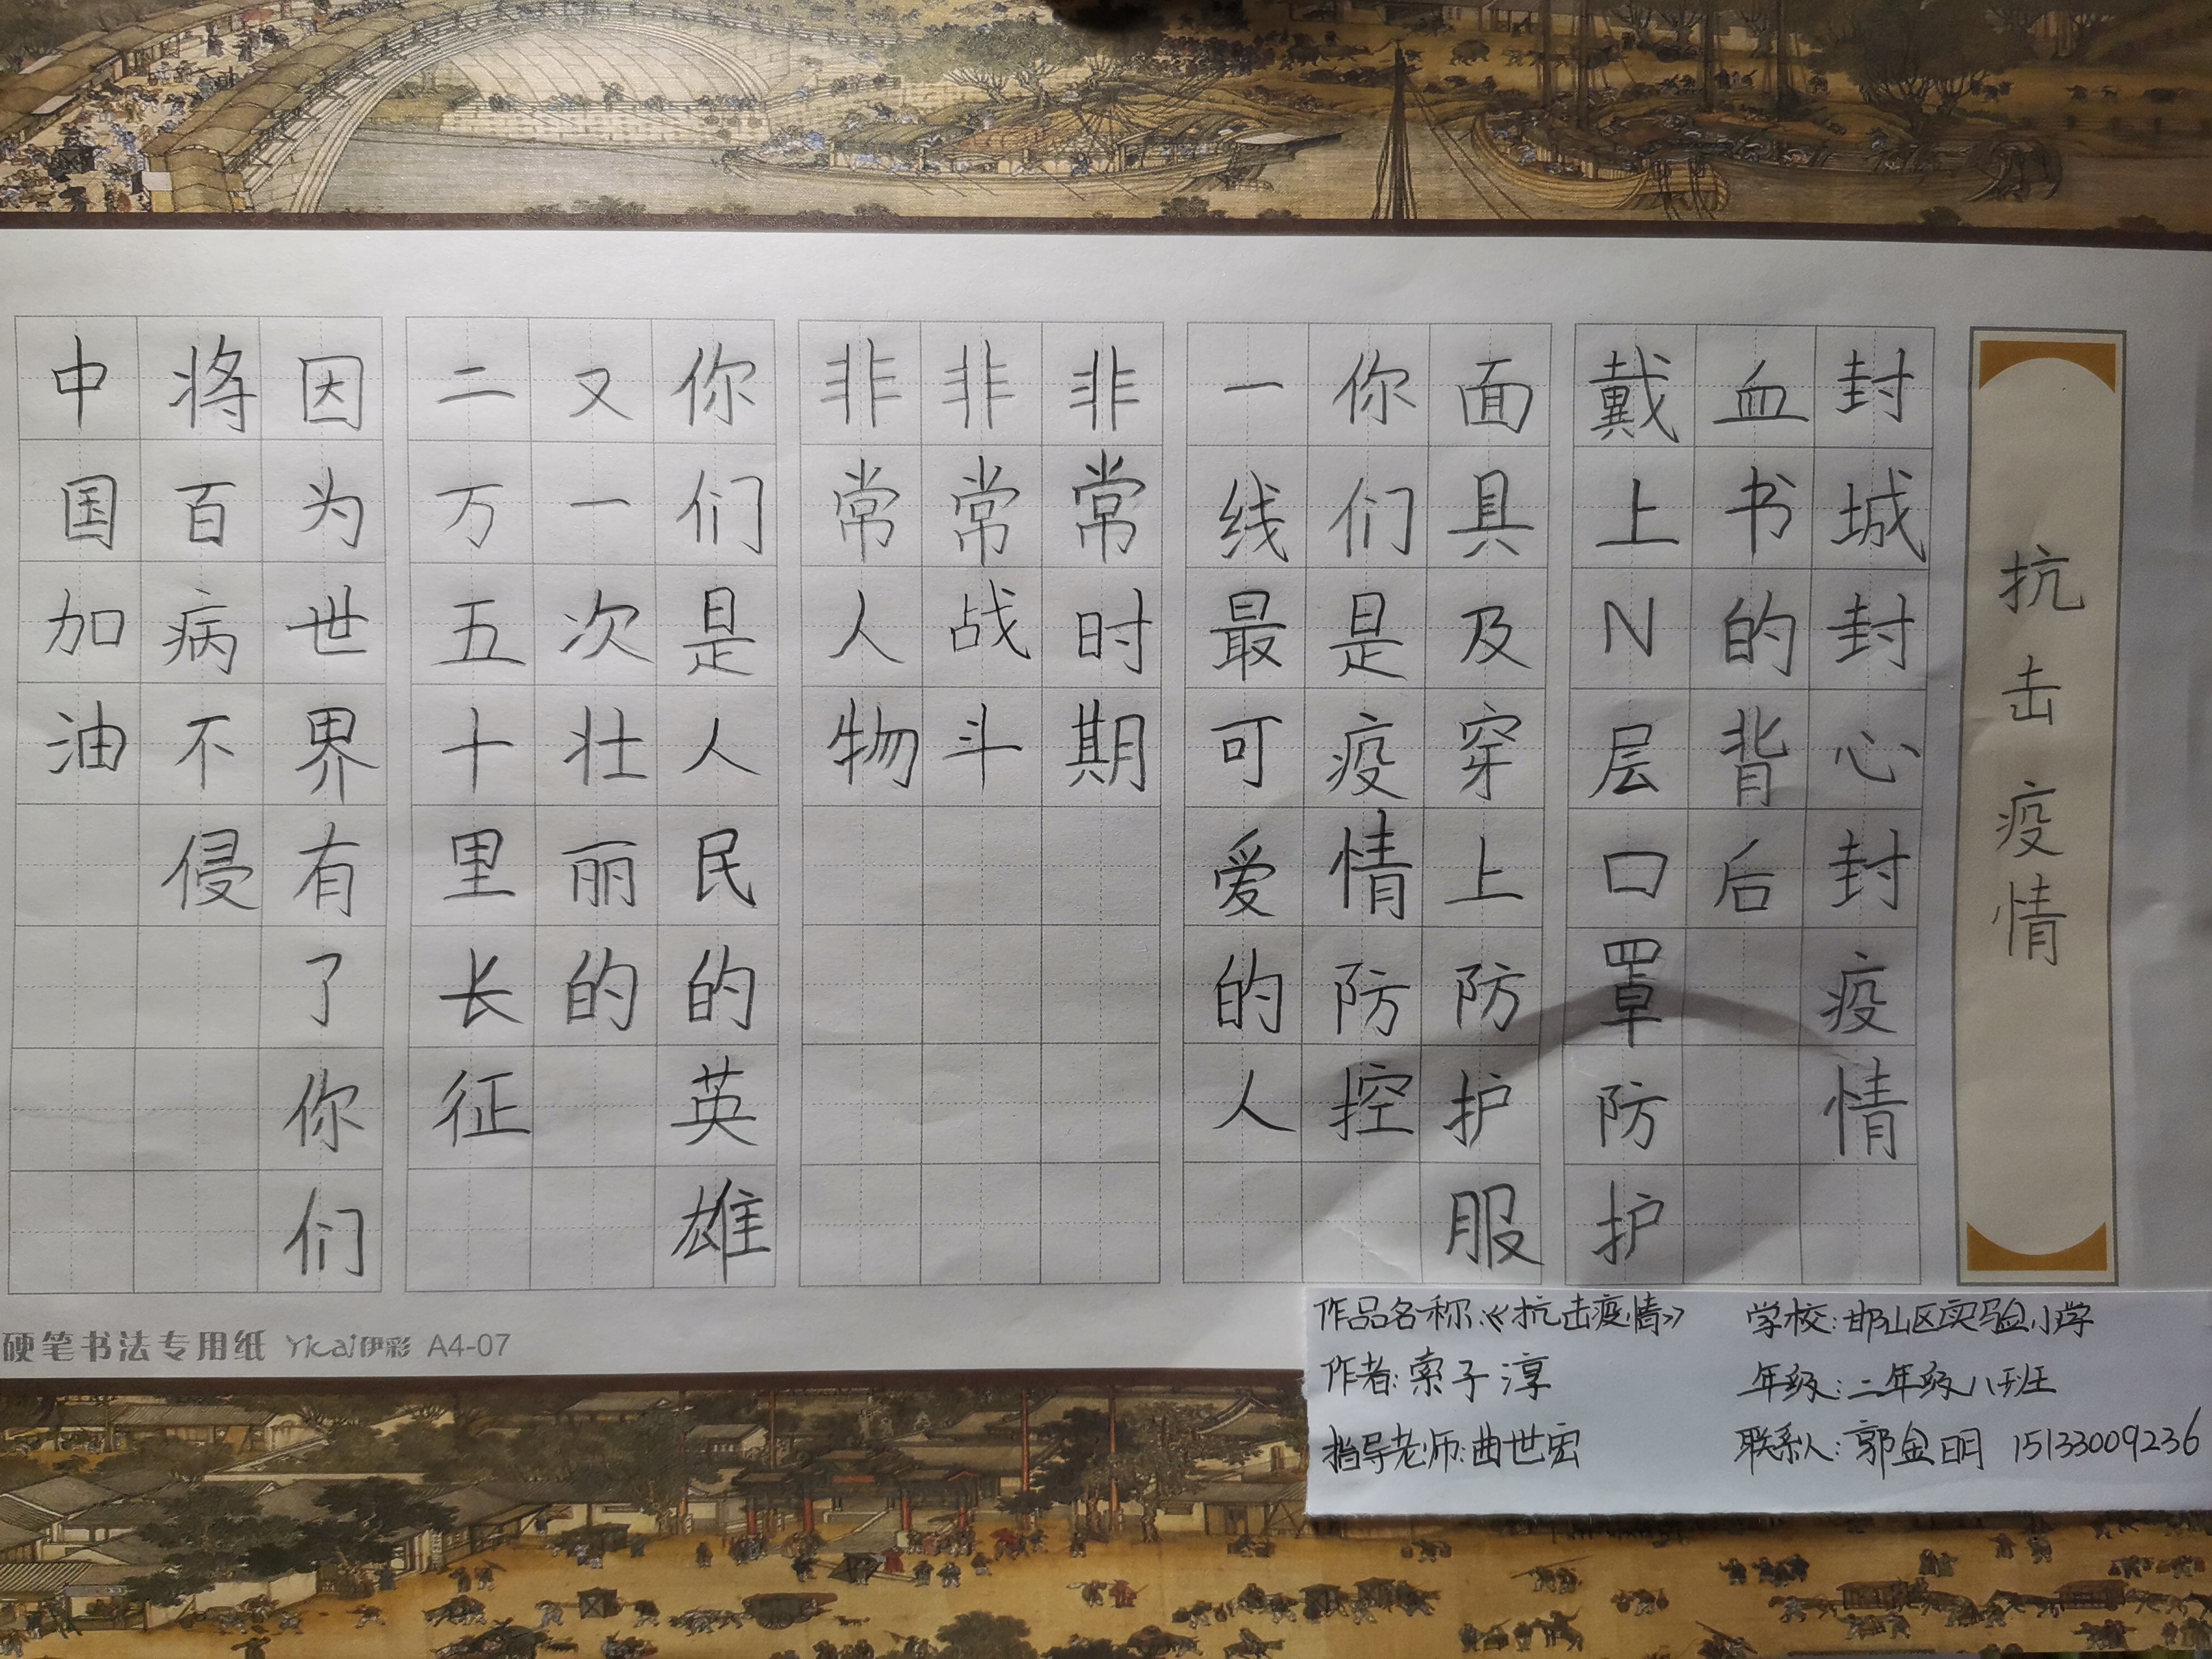 抗击疫情
封城封心封疫情
血书的背后
戴上N层口罩防护
面具及穿上防护服
你们是疫情防控
一线最可爱的人
非常时期
非常战斗
非常人物
你们是人民的英雄
又一次壮丽的
二万五十里长征
因为世界有了你们
将百病不侵
中国加油
硬笔书法专用纸 Yicai伊彩 A4-07
作品名称:《抗击疫情》 学校:邯山区实验小学
作者:索子淳 年级:二年级八班
指导老师:曲世宏 联系人:郭金明 15133009236